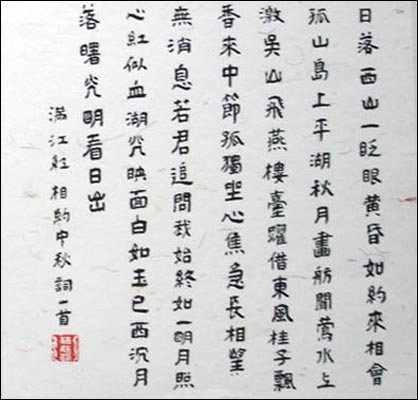 日落西山一眨眼黄昏如約來相會
孤山島上平湖秋月畫舫聞鶯水上
激吳山飛燕樓臺躍借東風桂子飄
香來中節孤獨坐心焦急長相望
無消息若君追問我始終如一明月照
心紅似血湖光映面白如玉已西沉月
落曙光明看日出
滿江紅相約中秋詞一首